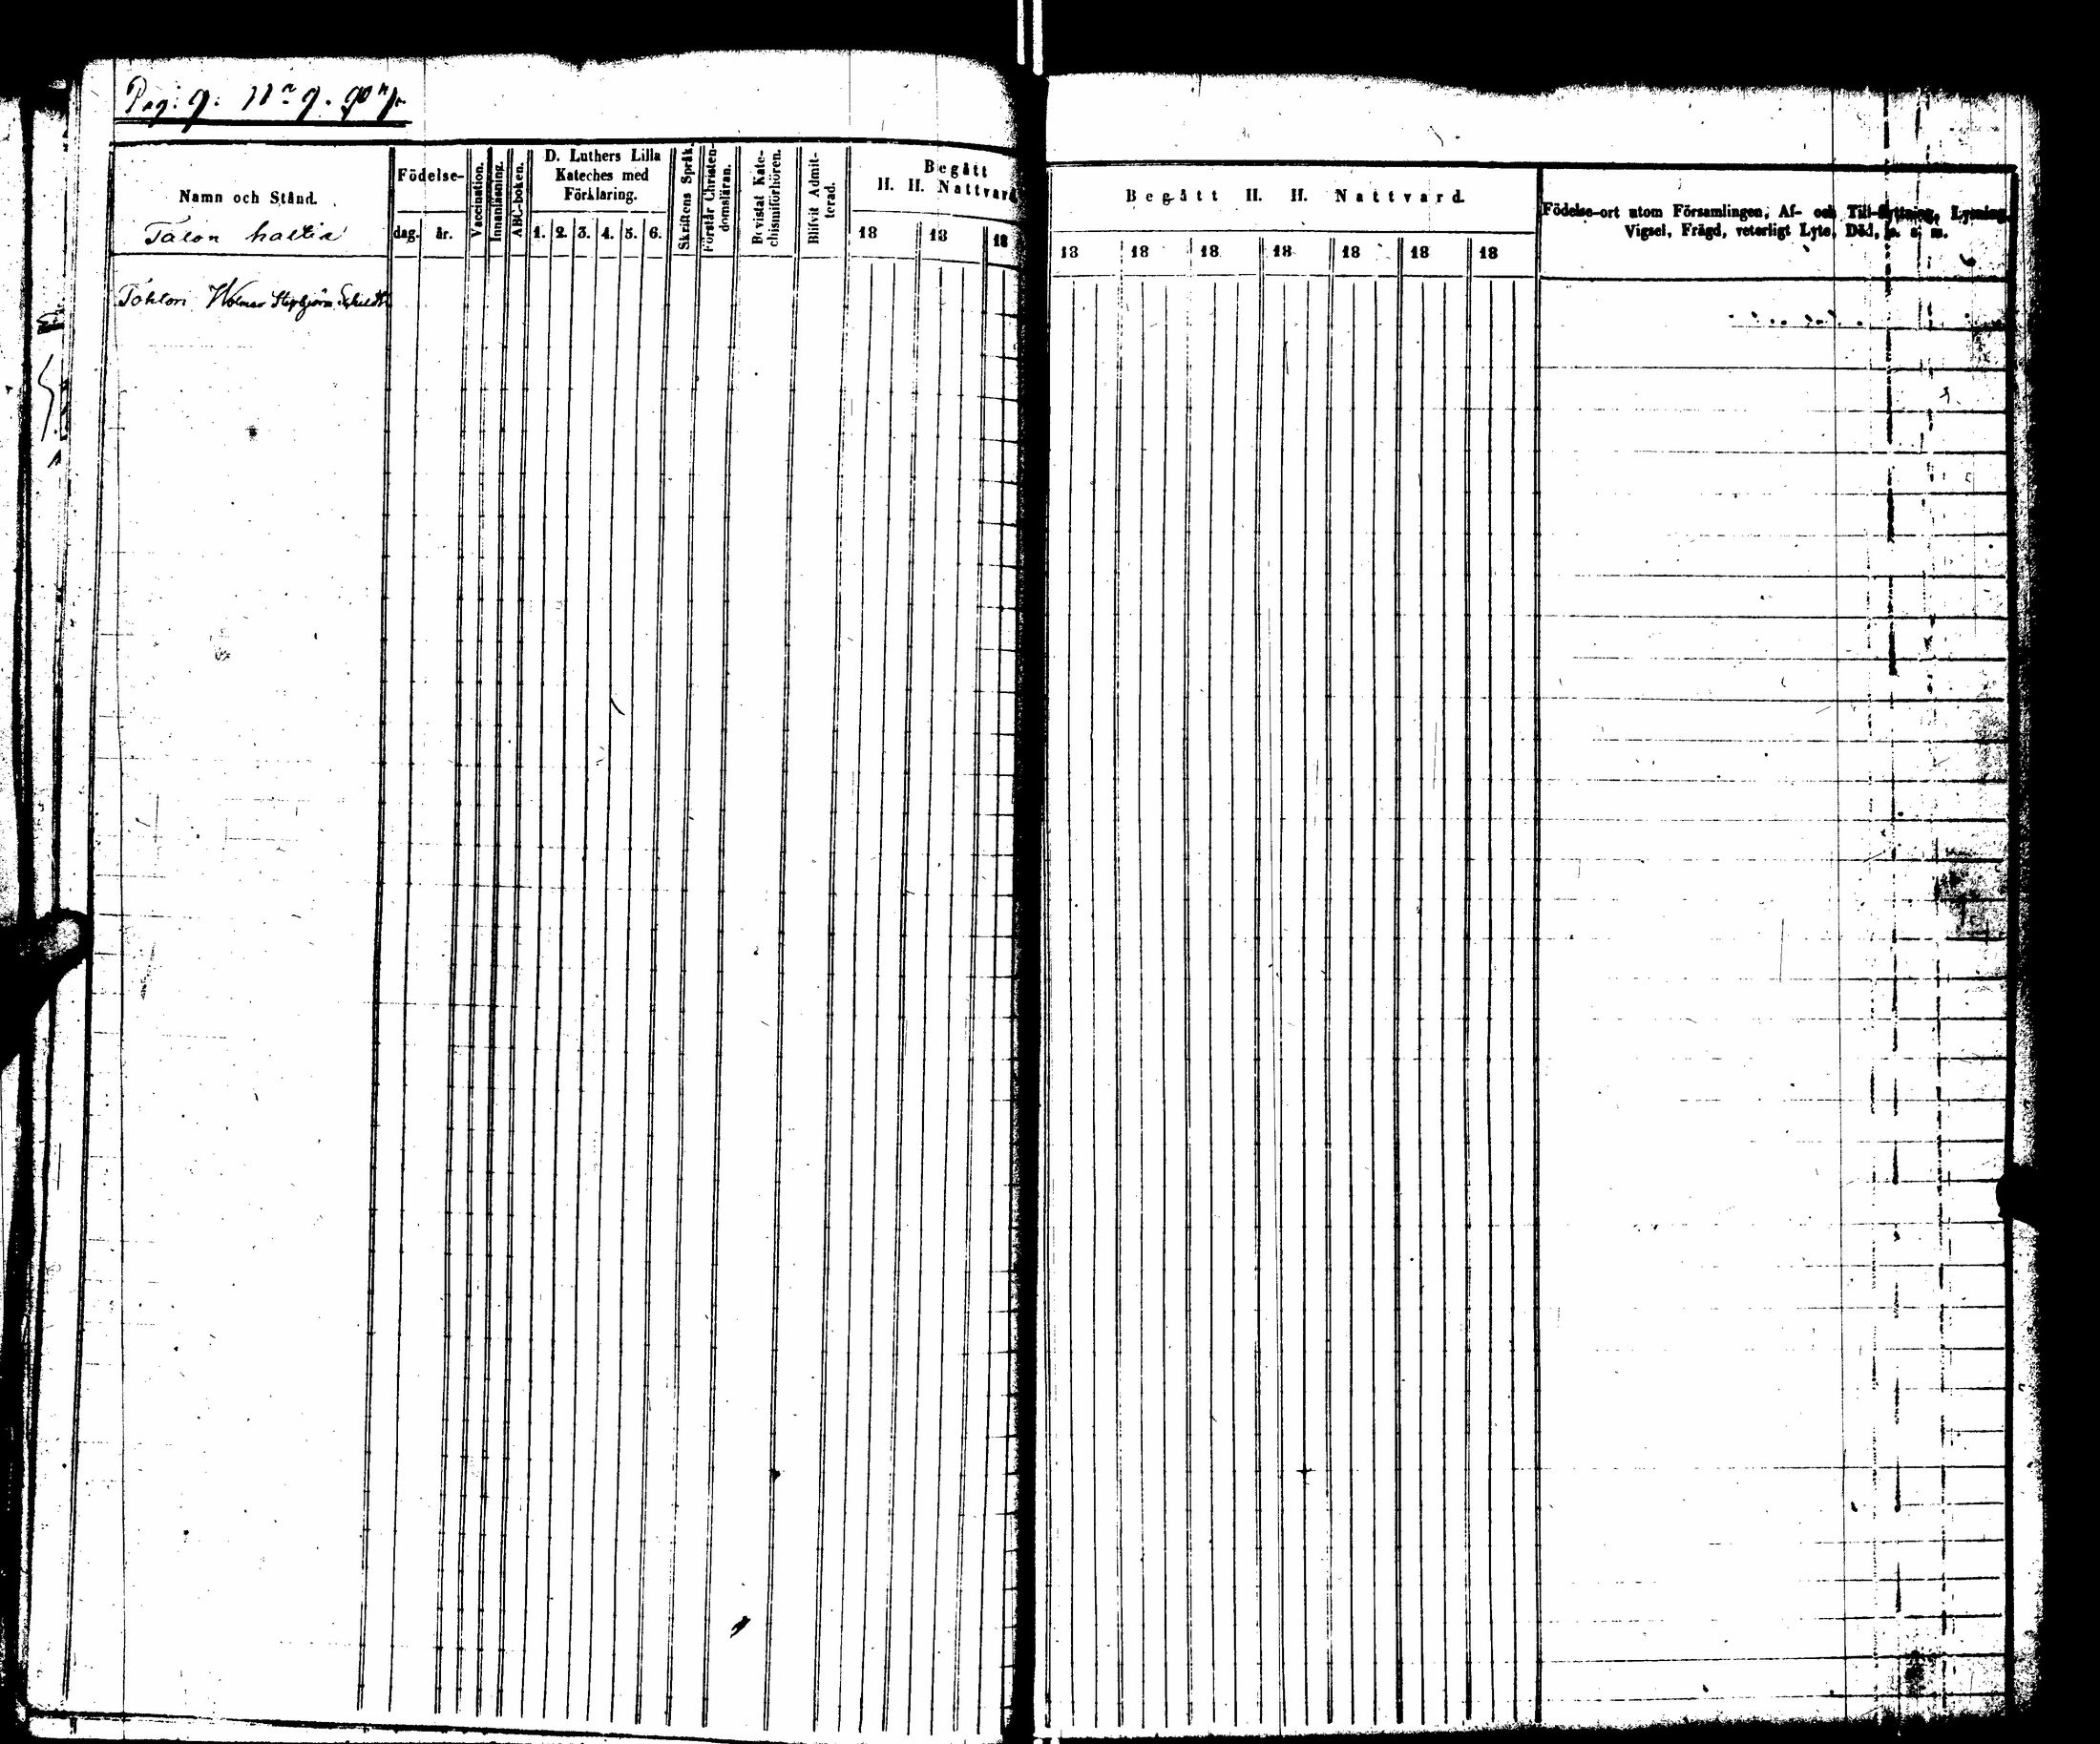 Pag: 9: N:o 9.
Namn och Stånd.
Talon haltia
Födelse-
dag. år.
Vaccination.
Innanläsning.
ABC-boken.
D. Luthers Lilla
Kateches med
Förklaring.
1. 2. 3. 4. 5. 6.
Skriftens Språk.
Förstår Christen-
domsläran.
Bevistat Kate-
chismiförhören.
Blifvit Admit-
terad.
Begått
H. H. Nattvard
18 18 18
Begått H. H. Nattvard.
18 18 18 18 18 18 18
Födelse-ort utom Församlingen, Af- och Till-flyttning, Lysning,
Vigsel, Frägd, veterligt Lyte, Död, m. m.
Tohtori Wolmar Styrbjörn Schildt